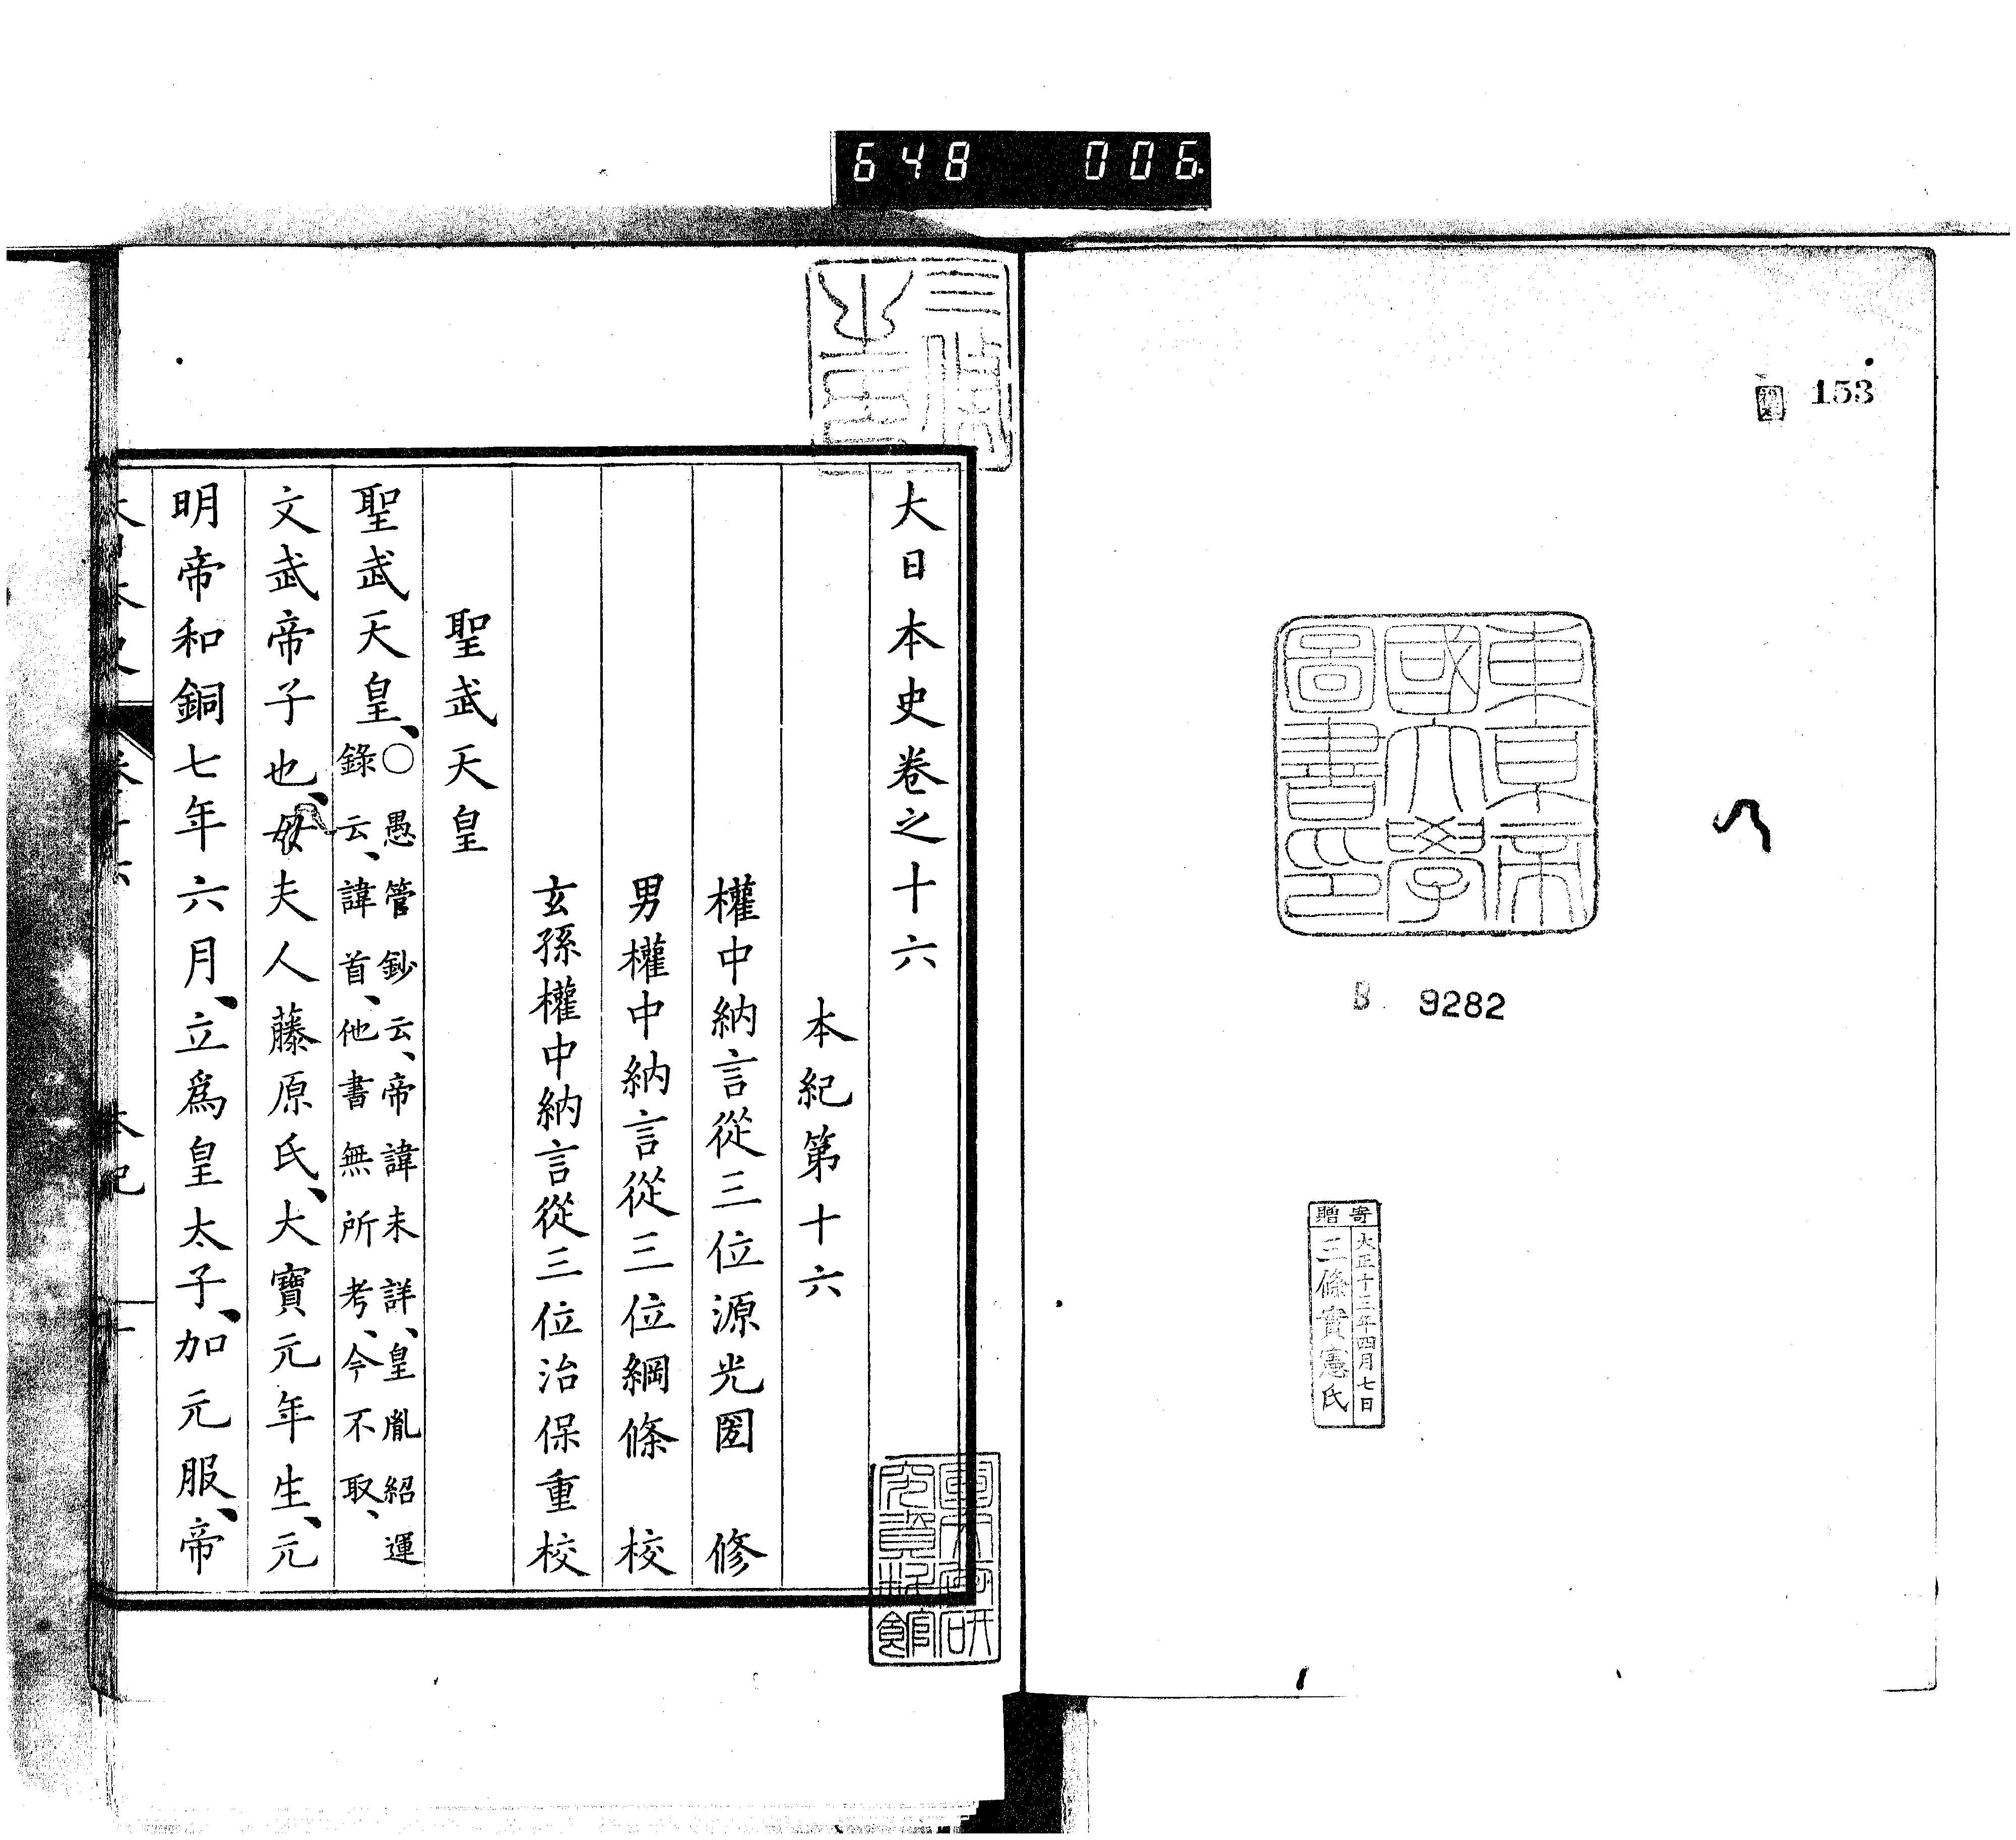 648 006
153
東京帝
國大學
圖書印
B 9282
寄贈
大正十三年四月七日
三條實憲氏
大日本史卷之十六
本紀第十六
權中納言從三位源光圀 修
男權中納言從三位綱條 校
玄孫權中納言從三位治保重校
聖武天皇
聖武天皇、
○愚管鈔云、帝諱未詳、皇胤紹運
錄云、諱首、他書無所考、今不取、
文武帝子也、母夫人藤原氏、大寶元年生、元
明帝和銅七年六月、立爲皇太子、加元服、帝